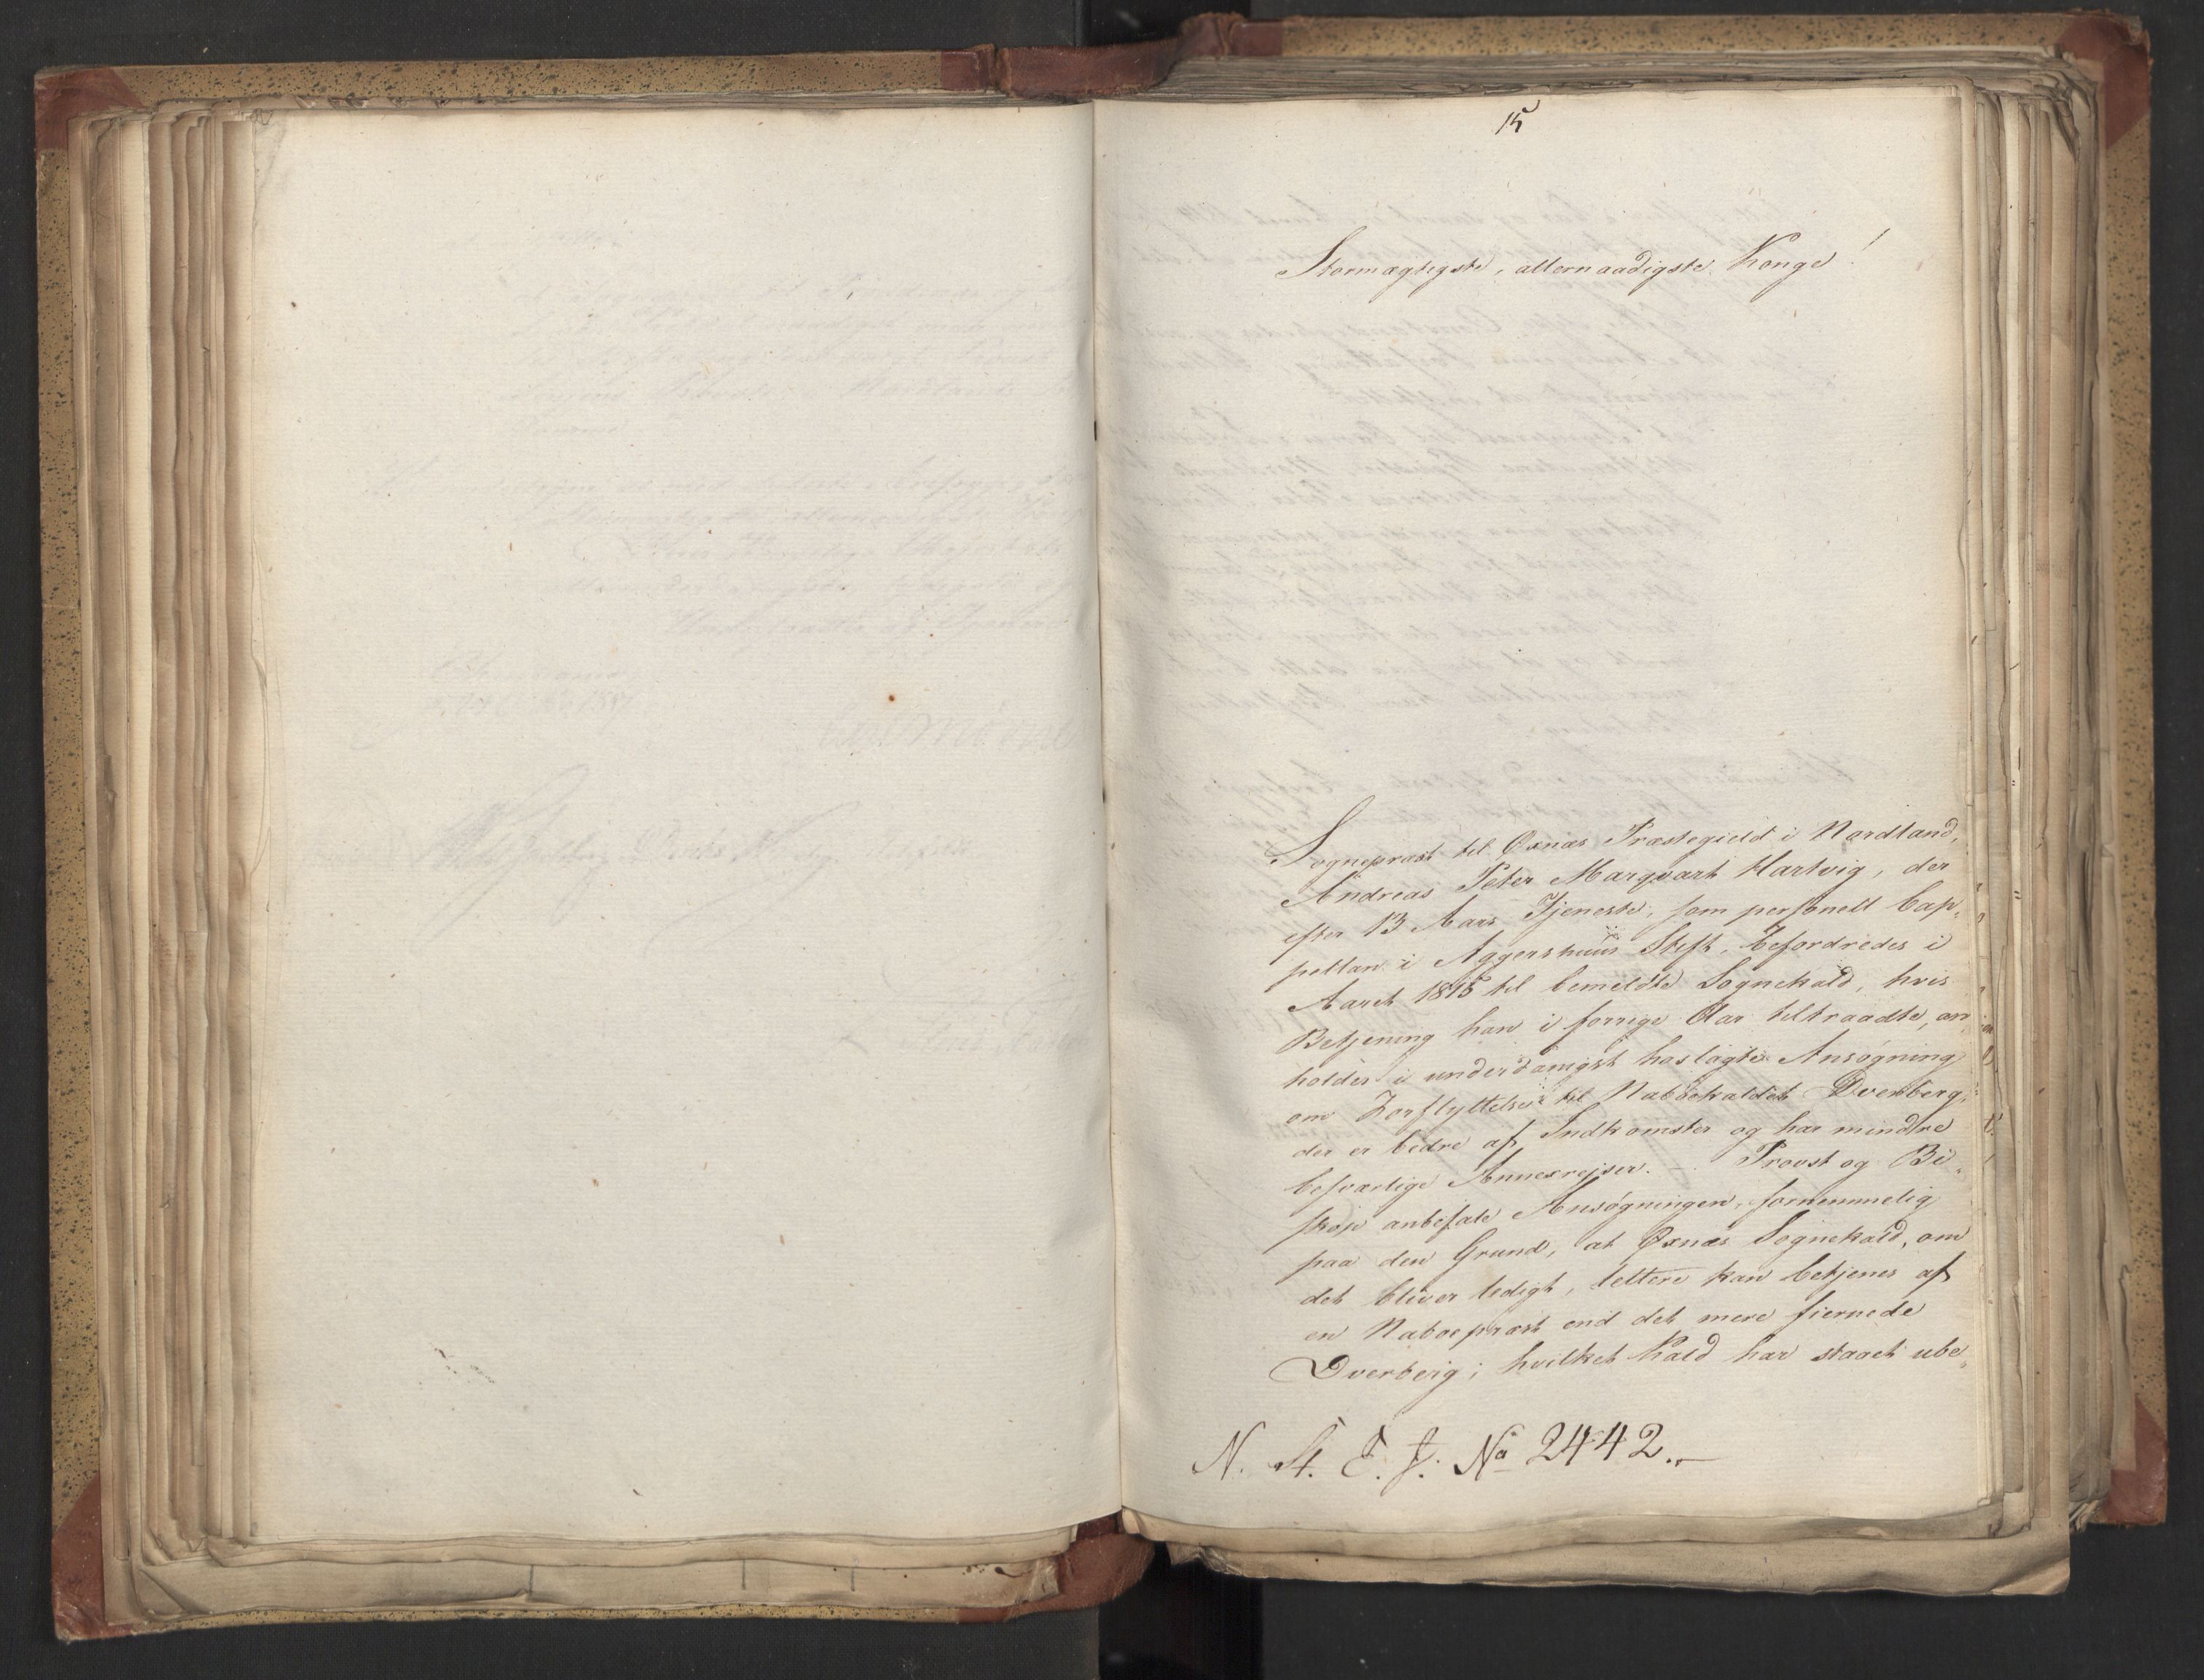 15
Stormægtigste, allernaadigste Konge!
Sognepræst til Öxnæs Præstegield i Nordland,
Andreas Peter Marqvart Hartvig, der
efter 13 Aars Tjeneste, som personell Cap„
pellan i Aggershuus Stift, befordredes i
Aaret 1815 til bemeldte Sognekald, hvis
Betjening han i forrige Aar tiltraadte, an„
holder i underdanigst hoslagte Ansøgning
om Forflyttelse til Nabokaldet Dverberg,
der er bedre af Indkomster og har mindre
besværlige Annexrejser. – Provst og Bi„
skop anbefale Ansøgningen, fornemmelig
paa den Grund, at Öxnæs Sognekald, om
det bliver ledigt, lettere kan betjenes af
en Naboepræst end det mere fiernede
Dverberg; hvilket Kald har staaet ube„
N. St. E. J. No 2442.–